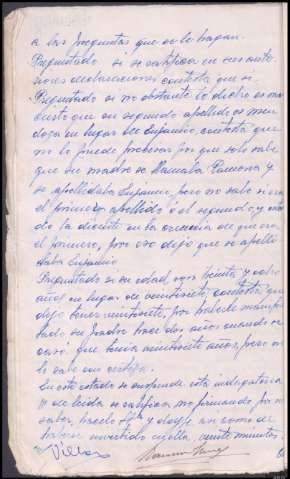 a las preguntas que se le hagan.
Preguntado si se ratifica en sus ante-
riores declaraciones contesta que si.
Preguntado si no obstante lo dicho es
cierto que su segundo apellido es Men
doza en lugar de Eusamio, contesta que
no lo puede precisar por que solo sabe
que su madre se llamaba Ramona y
se apellidaba Eusamio, pero no sabe si era
el primero apellido ó el segundo, y
la dicente en la creencia de que era
el primero, por eso dijo que se apelli
daba Eusamio
Preguntado si su edad, son treinta y ocho
años en lugar de veintisiete, contesta que
dijo tener veintisiete, por haberle manifes
tado su padre hace dos años cuando se
casó que tenia veinticinco años, pero no
lo sabe con certeza.
En este estado se suspende esta indagatoria
y leida se ratifica no firmando por no
saber, hacelo SSª y doy fé asi como de
haberse invertido en ella veinte minutos.
Villas